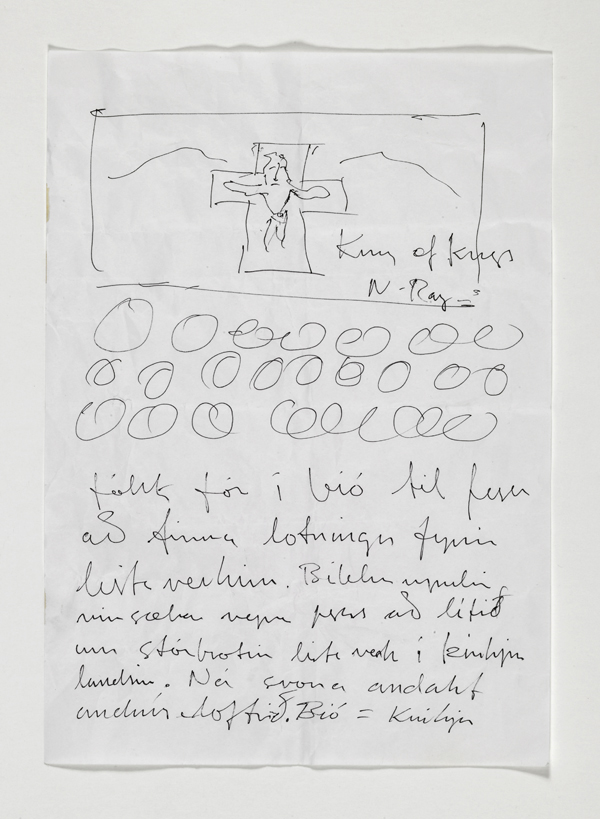 King of Kings
N. Ray
fólk fór í bíó til þess
að finna lotningu fyrir
listaverkinu.
vinsælar vegna þess að lítið
um stórbrotin listaverk í kirkjum
landsins. Ná svona andakt
andrúmsloftið. Bíó = Kirkja